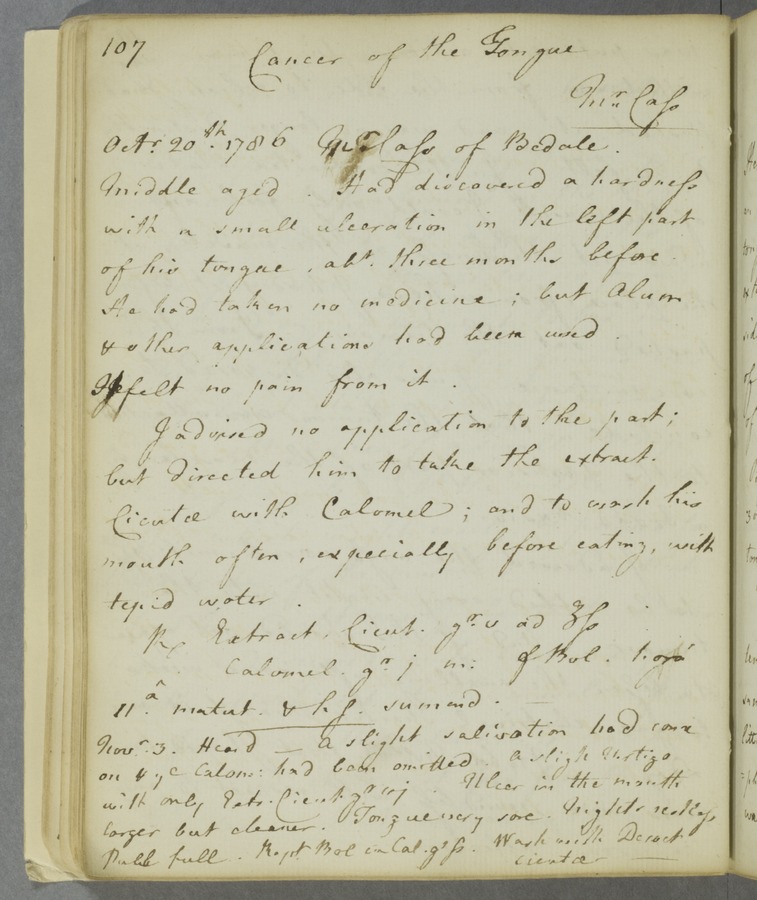 107
Cancer of the Tongue
Mr. Cass
Octr. 20th. 1786 Mr Cass of Bedale.
Middle aged. Had discovered a hardness
with a small ulceration in the left part
of his tongue, abt. three months before.
He had taken no medicine; but Alum
& other applications had been used.
He felt no pain from it.
I advised no application to the part;
but directed him to take the extract.
Cicutæ with Calomel; and to wash his
mouth often, especially before eating, with
tepid water.
Rx Extract. Cicut. gr. v ad ʒss
Calomel. gr j m: f Bol. hora
11a. matut. & h.s. sumend.
Novr. 3. Heard — A slight salivation had come
on & ye Calom: had been omitted. A sligh Vertigo
with only Extr. Cicut. gr vj. Ulcer in the mouth
larger but cleaner. Tongue very sore. Nights restless
Pulse full. Rept Bol Cal. grss. Wash with Decoct
Cicutæ —